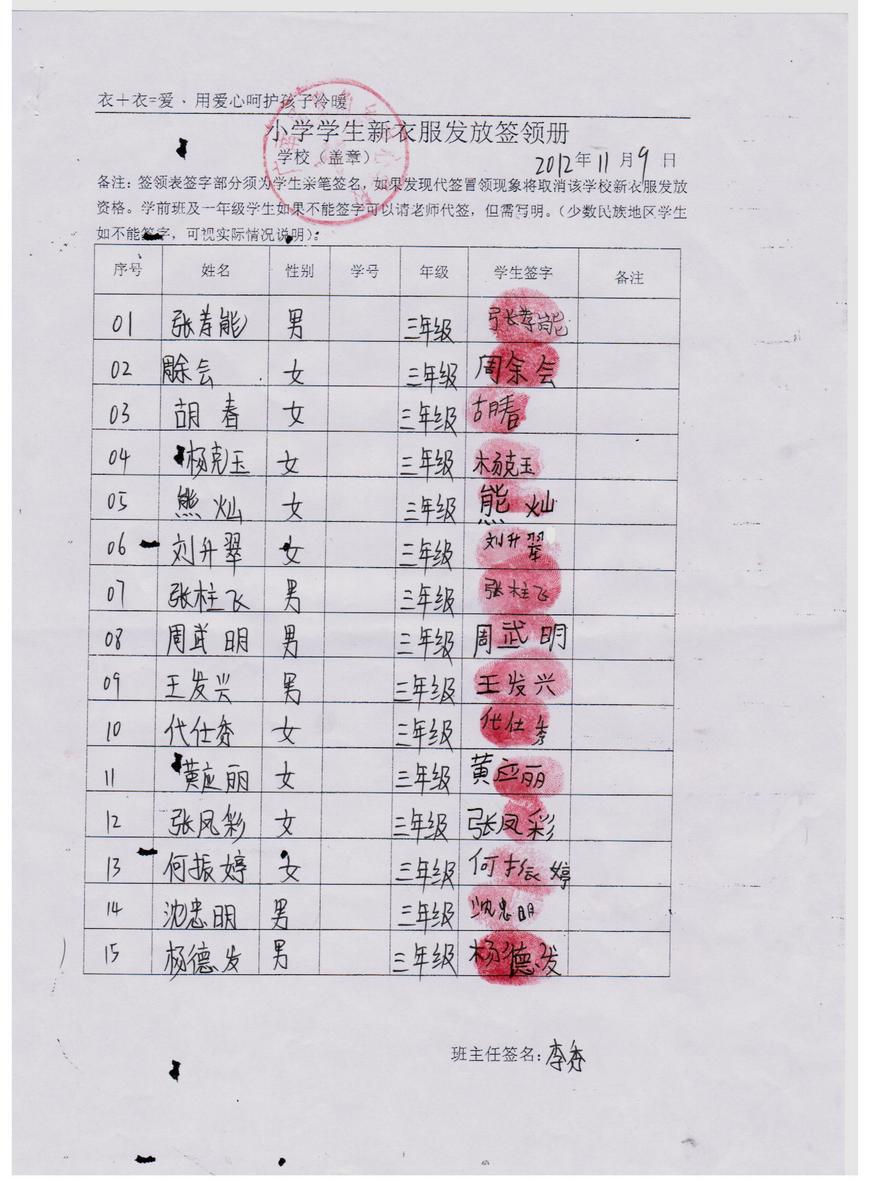 衣＋衣=爱、用爱心呵护孩子冷暖
小学学生新衣服发放签领册
学校（盖章） 2012年11月9日
备注：签领表签字部分须为学生亲笔签名，如果发现代签冒领现象将取消该学校新衣服发放
资格。学前班及一年级学生如果不能签字可以请老师代签，但需写明。（少数民族地区学生
如不能签字，可视实际情况说明）：
序号 姓名 性别 学号 年级 学生签字 备注
01 张孝能 男 三年级 张孝能
02 周余会 女 三年级 周余会
03 胡春 女 三年级 胡春
04 杨克玉 女 三年级 杨克玉
05 熊灿 女 三年级 熊灿
06 刘升翠 女 三年级 刘升翠
07 张柱飞 男 三年级 张柱飞
08 周武明 男 三年级 周武明
09 王发兴 男 三年级 王发兴
10 代仕秀 女 三年级 代仕秀
11 黄应丽 女 三年级 黄应丽
12 张凤彩 女 三年级 张凤彩
13 何振婷 女 三年级 何振婷
14 沈忠明 男 三年级 沈忠明
15 杨德发 男 三年级 杨德发
班主任签名：李秀